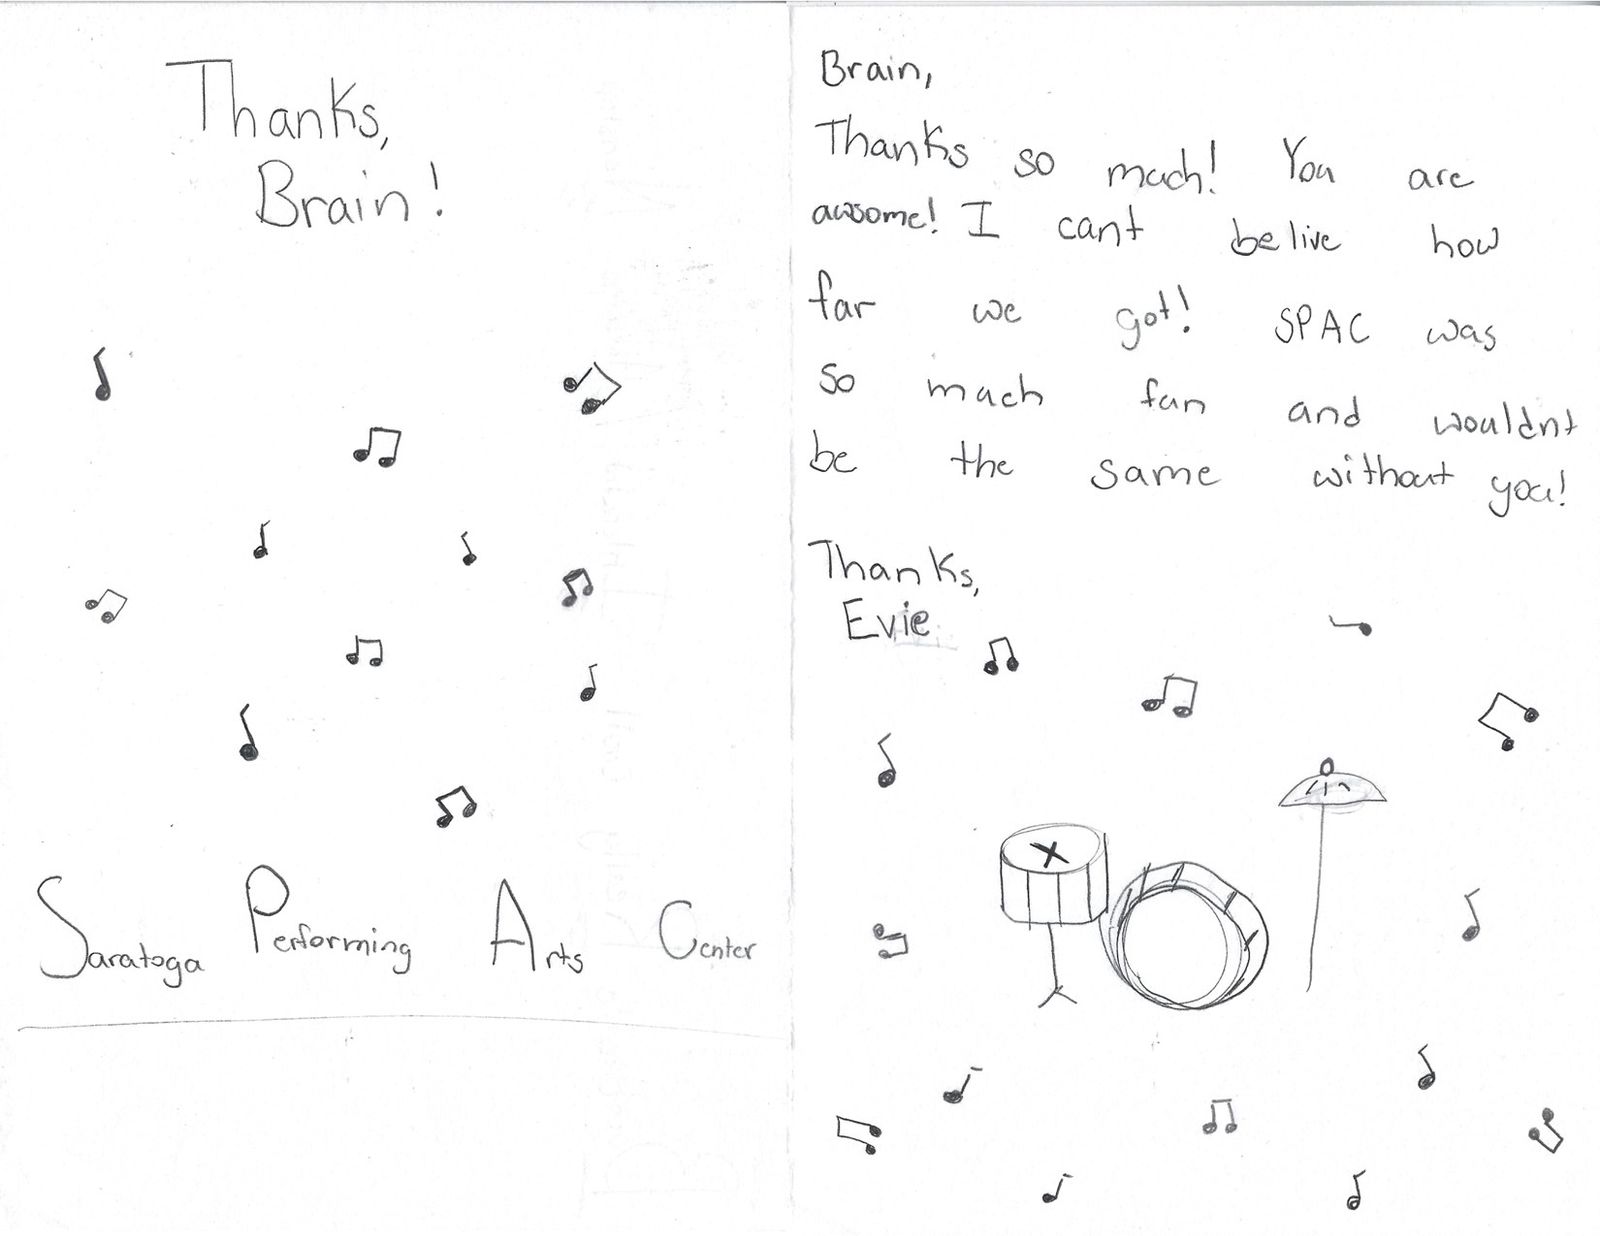 Thanks,
Brain!
Saratoga Performing Arts Center
Brain,
Thanks so much! You are
awsome! I cant belive how
far we got! SPAC was
so much fun and wouldnt
be the same without you!
Thanks,
Evie